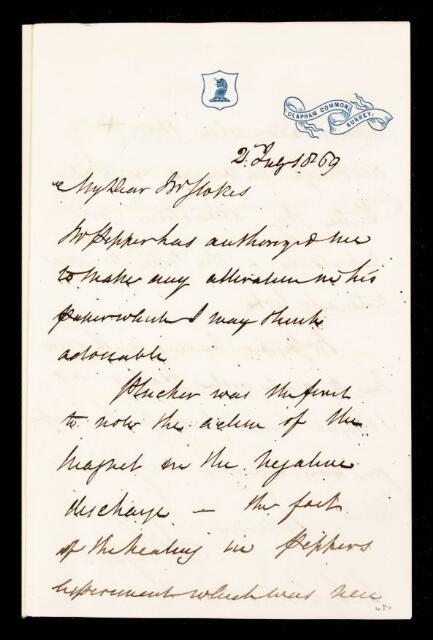 CLAPHAM COMMON,
SURREY.
2 July 1869
My Dear Mr Stokes
Mr Pepper has authorized me
to make any alteration in his
paper which I may think
advisable
Plucker was the first
to note the action of the
Magnet on the negative
discharge — the fact
of the heating in Peppers
experiment which was new